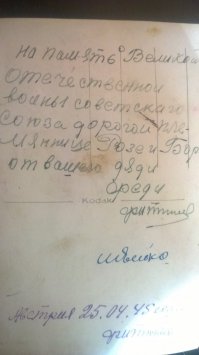 на память о Великой
отечественной
войны советскаго
союза дорогой пле-
мяннице Розе и Бор
от вашего дяди
Kodak
Австрия 25.04.45